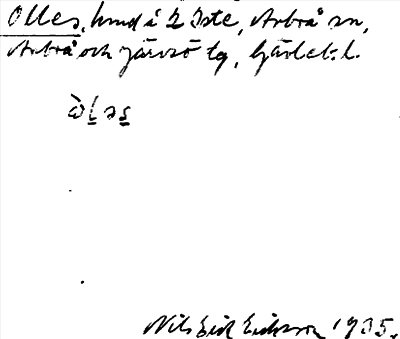 Olles, hmd å 2 Iste, Arbrå sn,
Arbrå och Järvsö tg, Gävleb. l.
ò̀l̲əs̲
Nils Erik Eriksson 1935.